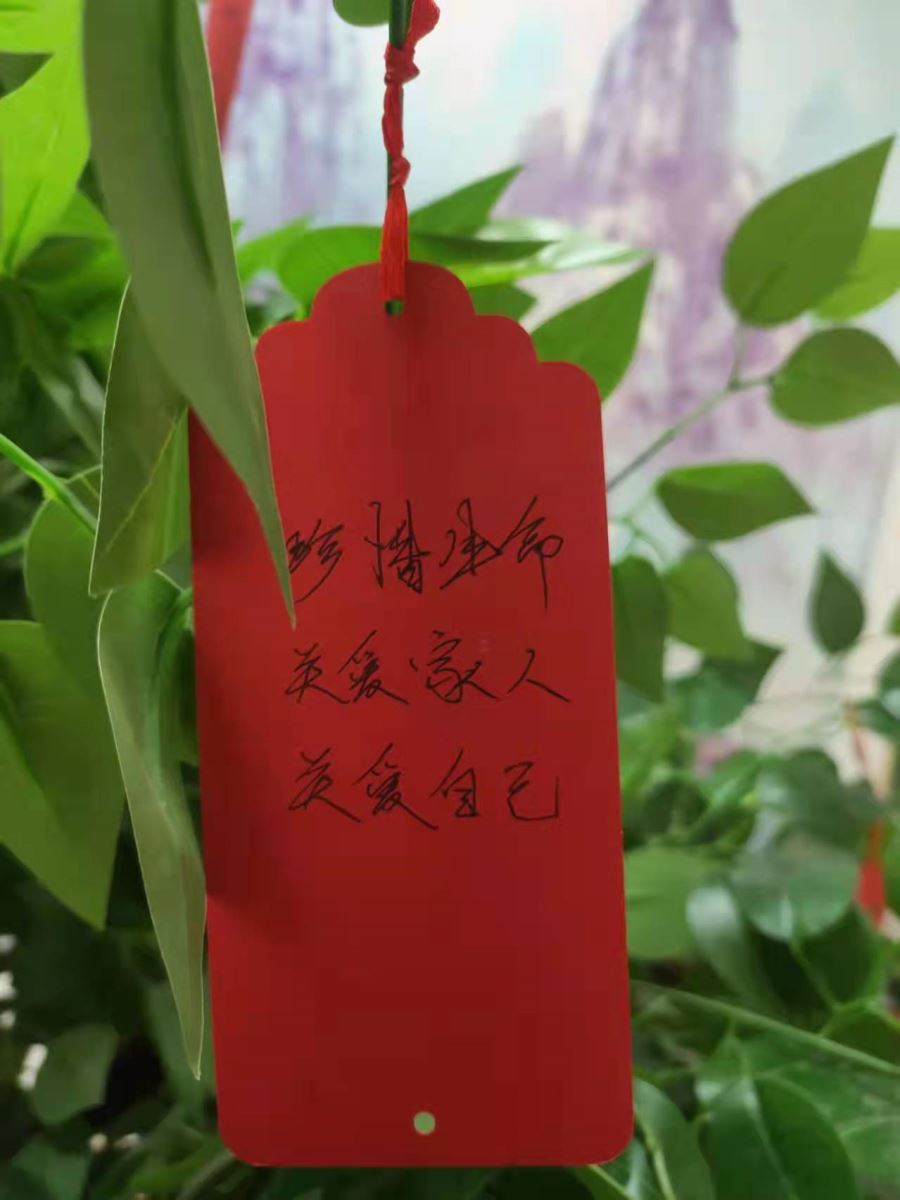 珍惜生命
关爱家人
关爱自己